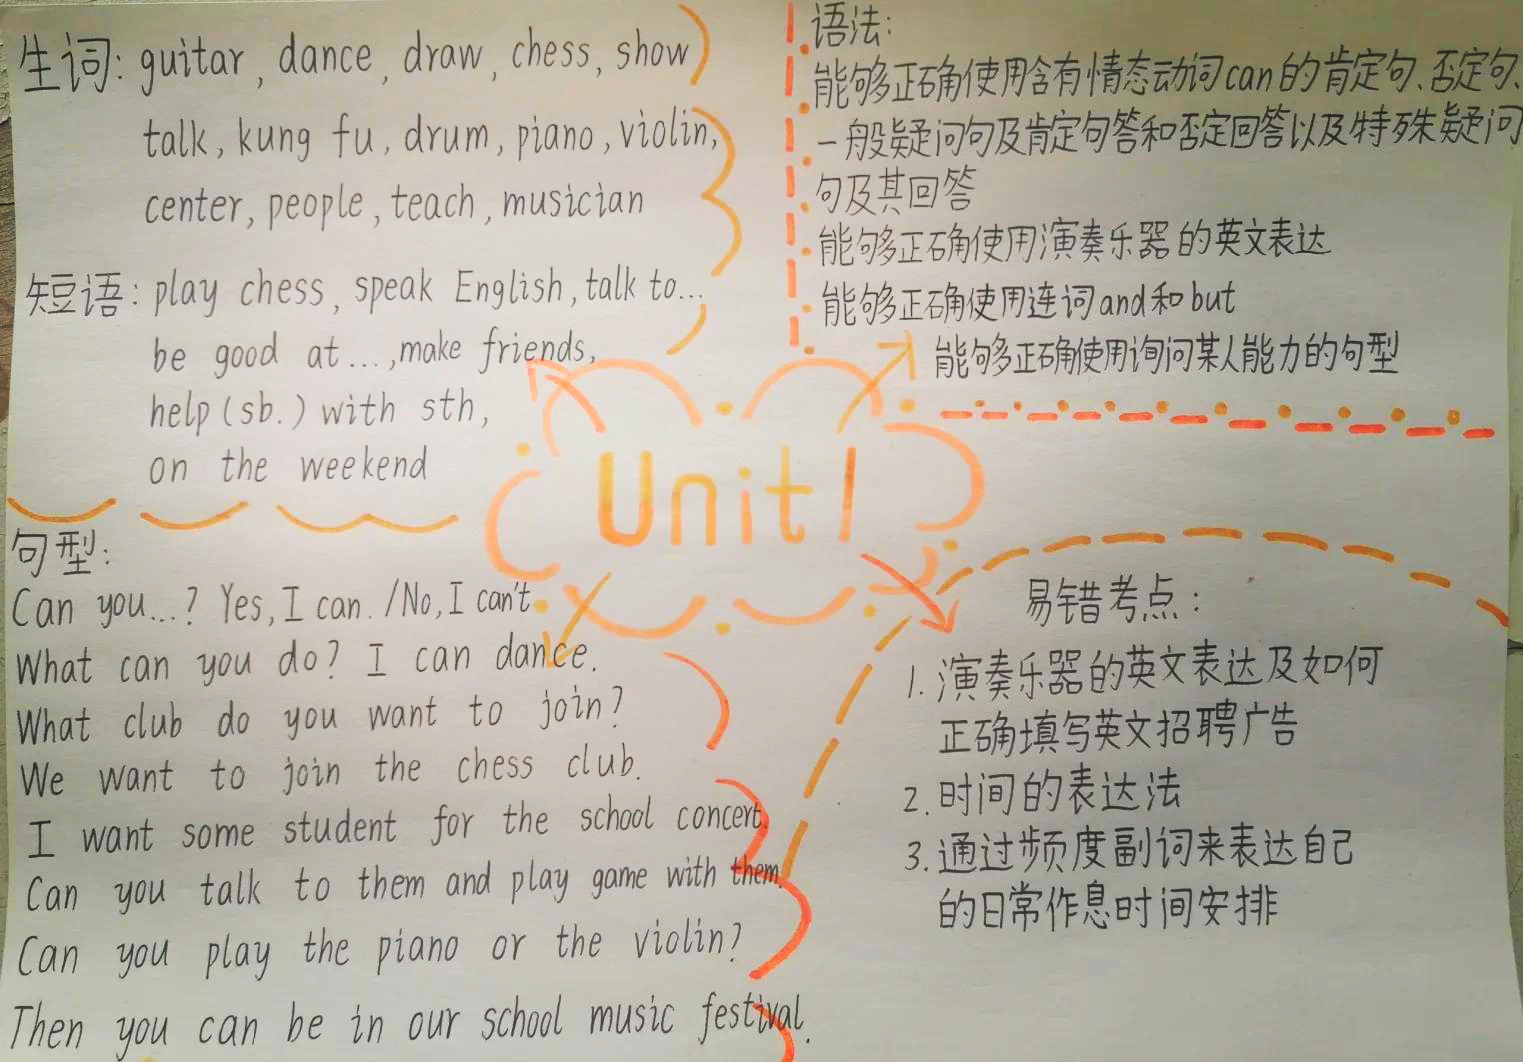 生词: guitar, dance, draw, chess, show
talk, kung fu, drum, piano, violin,
center, people, teach, musician
短语: play chess, speak English, talk to...
be good at..., make friends,
help (sb.) with sth,
on the weekend
语法:
能够正确使用含有情态动词can的肯定句、否定句、
一般疑问句及肯定句答和否定回答以及特殊疑问
句及其回答
能够正确使用演奏乐器的英文表达
能够正确使用连词and和but
能够正确使用询问某人能力的句型
Unit 1
句型:
Can you...? Yes, I can. /No, I can't.
What can you do? I can dance.
What club do you want to join?
We want to join the chess club.
I want some student for the school concert.
Can you talk to them and play game with them.
Can you play the piano or the violin?
Then you can be in our school music festival.
易错考点:
1. 演奏乐器的英文表达及如何
正确填写英文招聘广告
2. 时间的表达法
3. 通过频度副词来表达自己
的日常作息时间安排